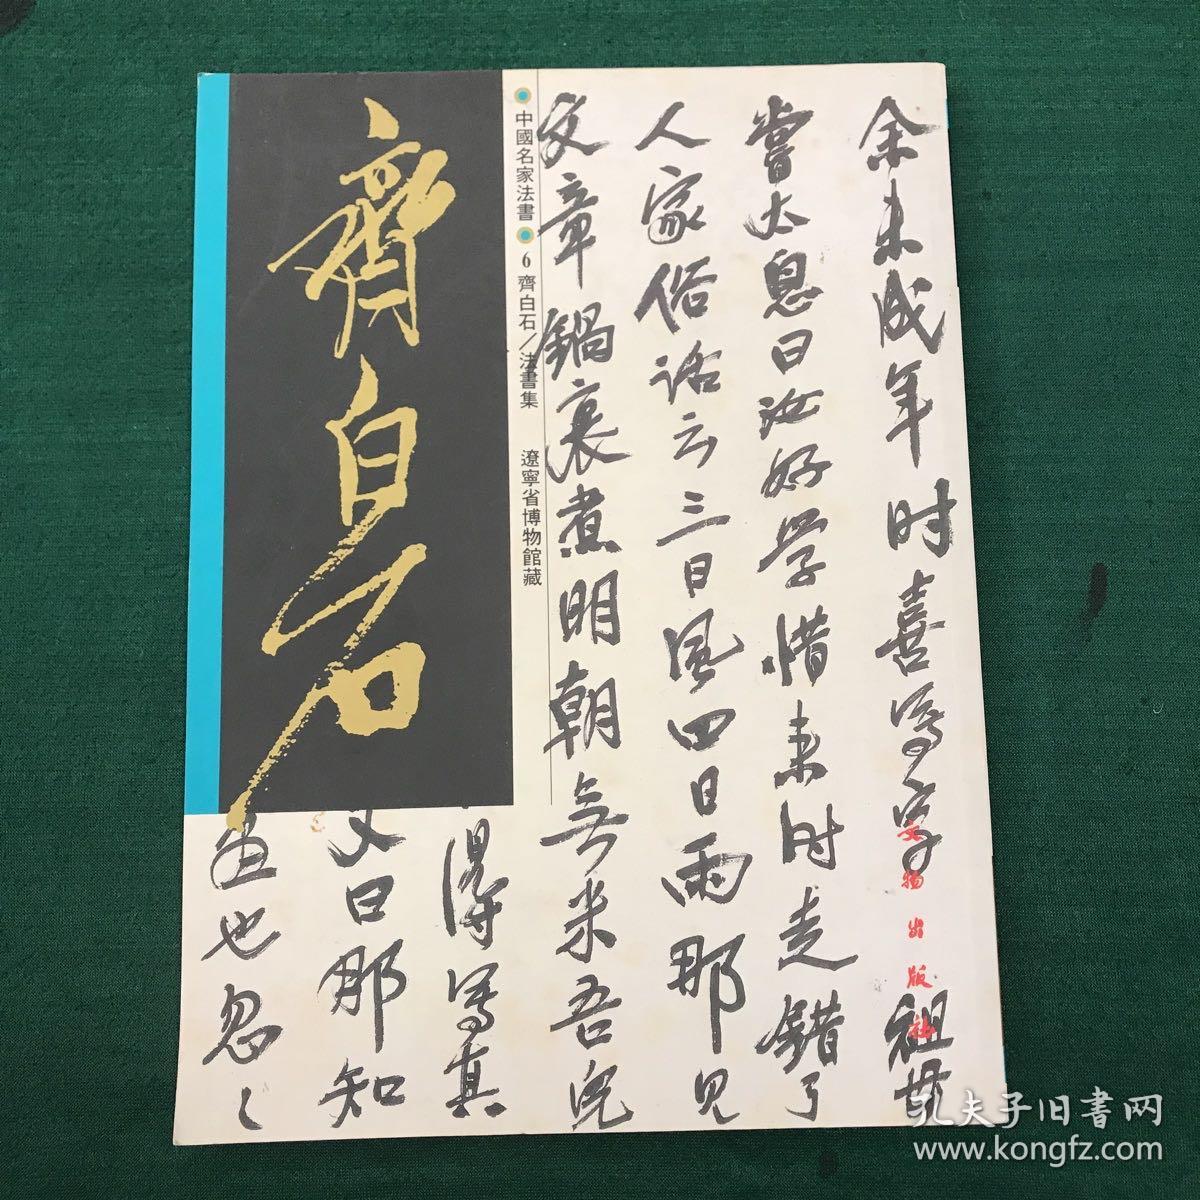 余未成年时喜写字祖母
嘗太息曰汝好学惜来时走错了
人家俗语云三日風四日雨那见
文章鍋裏煮明朝無米吾児
得写真
又曰那知
也忽〻
齊白石
中國名家法書
6 齊白石／法書集
遼寧省博物館藏
文物出版社
孔夫子旧书网
www.kongfz.com